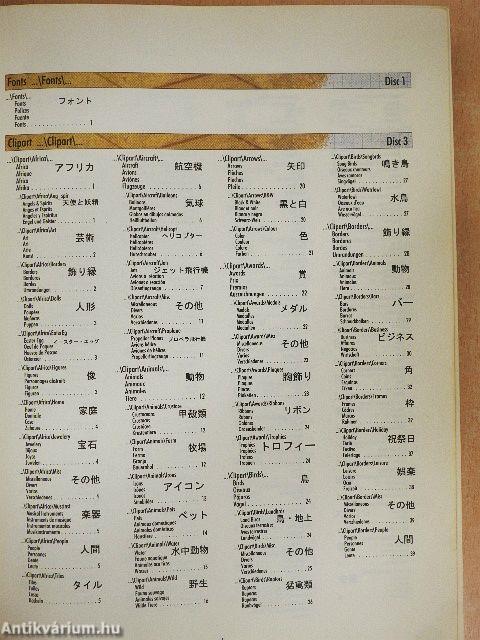 Fonts ...\Fonts\...
Disc 1
...\Fonts\...
Fonts
Polices
Fuente
Fonts 1
フォント
Clipart ...\Clipart\...
Disc 3
...\Clipart\Africa\...
Africa
Afrique
Africa
Afrika 1
アフリカ
Angels & Spirits
天使と妖精
...\Clipart\Africa\Art
Art
Art
Arte
Kunst 2
芸術
...\Clipart\Africa\Borders
Borders
Bordures
Umrandungen 2
飾り縁
...\Clipart\Africa\Dolls
Dolls
Poupées
Muñecas
Puppen 3
人形
Easter Egg
Oeuf de Paques
Huevos de Pascua
Ostereier 3
イースター・エッグ
...\Clipart\Africa\Figures
Figures
Figuras
Figuren 3
像
...\Clipart\Africa\Home
Home
Domicile
Casa
Zuhause 4
家庭
...\Clipart\Africa\Jewelry
Jewelry
Bijoux
Joyas
Juwelen 4
宝石
...\Clipart\Africa\Misc
Miscellaneous
Divers
Varios
Verschiedenes 4
その他
Musical Instruments
Instruments de musique
Instrumentos musicales
Musikinstrumente 5
楽器
...\Clipart\Africa\People
People
Personnes
Gente
Leute 5
人間
...\Clipart\Africa\Tiles
Tiles
Tuiles
Kacheln 5
タイル
...\Clipart\Aircraft\...
Aircraft
Avions
Aviones
Flugzeuge 6
航空機
...\Clipart\Aircraft\Balloons
Balloons
Montgolfières
Globos no dirigidos
気球
Helicopter
Hélicoptères
Helicópteros
Hubschrauber 6
ヘリコプター
...\Clipart\Aircraft\Jets
Jets
Avions à réaction
Düsenflugzeuge 7
ジェット飛行機
...\Clipart\Aircraft\Misc
Miscellaneous
Divers
Varios
Verschiedenes 11
その他
Propeller Planes
Avions à hélice
Aviones de hélices
Propellerflugzeuge 11
プロペラ飛行機
...\Clipart\Animals\...
Animals
Animaux
Animales
Tiere 12
動物
Crustaceans
甲殻類
...\Clipart\Animals\Farm
Farm
Ferme
Granja
Bauernhof 12
牧場
...\Clipart\Animals\Icons
Icons
Icônes
Iconos
Sinnbilder 13
アイコン
...\Clipart\Animals\Pets
Pets
Animaux domestiques
Animales domésticos
Haustiere 14
ペット
...\Clipart\Animals\Water
Water
Faune aquatique
Wasser 15
水中動物
...\Clipart\Animals\Wild
Wild
Faune sauvage
Animales salvajes
Wilde Tiere 16
野生
...\Clipart\Arrows\...
Arrows
Flèches
Flechas
Pfeile 20
矢印
...\Clipart\Arrows\B&W
Black & White
Schwarz-Weiß 20
黒と白
...\Clipart\Arrows\Colour
Color
Couleur
Color
Farben 21
色
...\Clipart\Awards\...
Awards
Prix
Premios
Auszeichnungen 22
賞
...\Clipart\Awards\Medals
Medals
Médailles
Medallas
Medaillen 22
メダル
...\Clipart\Awards\Misc
Miscellaneous
Divers
Varios
Verschiedenes 23
その他
...\Clipart\Awards\Plaques
Plaques
Plaques
Placas
Plaketten 23
胸飾り
...\Clipart\Awards\Ribbons
Ribbons
Rubans
リボン
...\Clipart\Awards\Trophies
Trophies
Trophées
Trofeos
Trophäen 24
トロフィー
...\Clipart\Birds\...
Birds
Oiseaux
Pájaros
Vögel 24
鳥
Land Birds
Oiseaux terrestres
Aves terrestres
Landvögel 24
鳥・地上
...\Clipart\Birds\Misc
Miscellaneous
Divers
Varios
Verschiedenes 25
その他
Raptors
Rapaces
Raubvögel 26
猛禽類
...\Clipart\Birds\Songbirds
Song Birds
Oiseaux chanteurs
Singvögel 27
鳴き鳥
Waterfowl
Oiseaux d'eau
Wasservögel 27
水鳥
...\Clipart\Borders\...
Borders
Bordures
Bordes
Umrandungen 28
飾り縁
Animals
Animaux
Animales
Tiere 28
動物
...\Clipart\Borders\Bars
Bars
Barres
バー
...\Clipart\Borders\Business
Business
Affaires
Negocios
Wirtschaft 30
ビジネス
...\Clipart\Borders\Corners
Corners
Coins
Esquinas
Ecken 32
角
...\Clipart\Borders\Frames
Frames
Cadres
Marcos
Rahmen 32
枠
...\Clipart\Borders\Holiday
Holiday
Feiertage 37
祝祭日
...\Clipart\Borders\Leisure
Leisure
Loisirs
Ocio
Freizeit 38
娯楽
...\Clipart\Borders\Misc
Miscellaneous
Divers
Varios
Verschiedenes 39
その他
...\Clipart\Borders\People
People
Personnes
Gente
Leute 39
人間
Antikvárium.hu